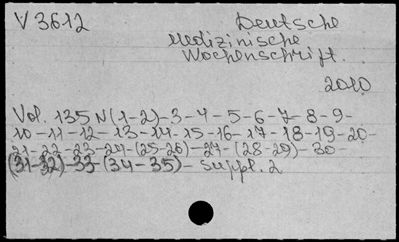 V 3612
Deutsche
Medizinische
Wochenschrift.
2010
Vol. 135 N(1-2)-3-4-5-6-7-8-9-
10-11-12-13-14-15-16-17-18-19-20-
21-22-23-24-(25-26)-27-(28-29)-30-
(31-32)-33-(34-35)-Suppl. 2